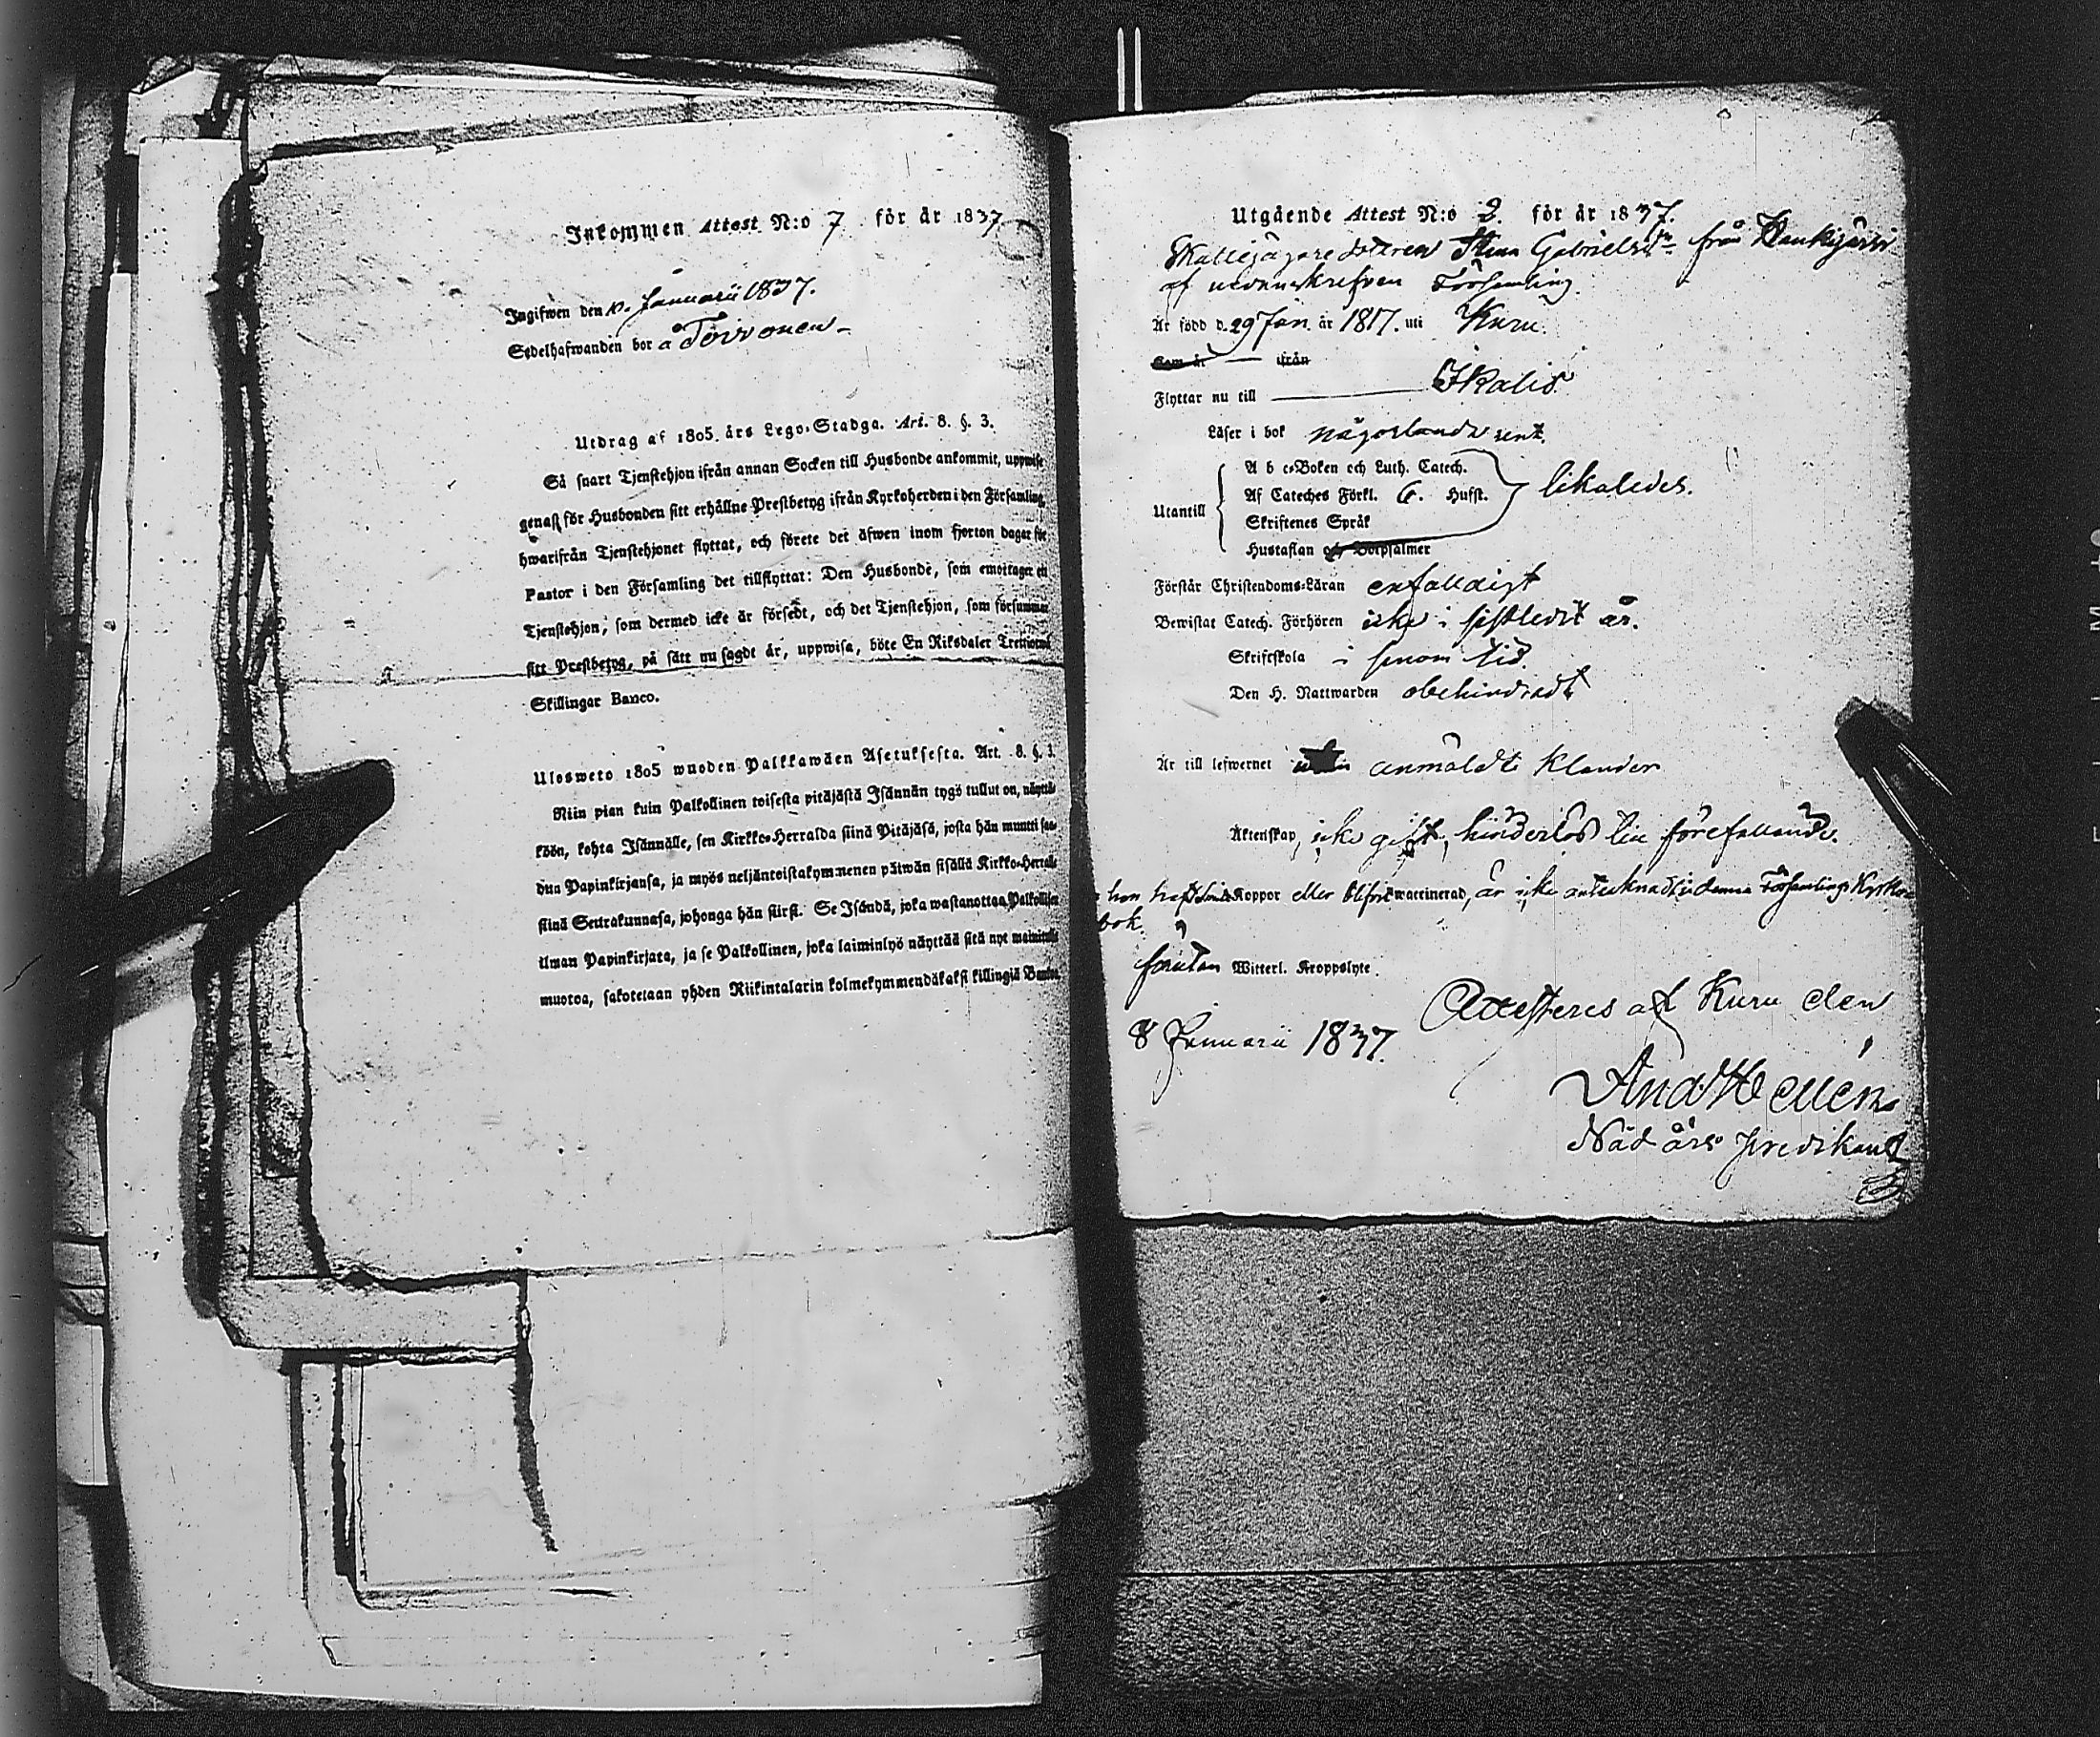 Inkommen Attest N:o 7 för år 1837
Ingifwen den 10. Januarii 1837.
Sedelhafwanden bor å Toivonen
Utdrag af 1805. års Lego-Stadga. Art. 8. §. 3.
Så snart Tjenstehjon ifrån annan Socken till Husbonde ankommit, uppwise
genast för Husbonden sitt erhållne Prestbetyg ifrån Kyrkoherden i den Församling
hwarifrån Tjenstehjonet flyttat, och förete det äfwen inom fjorton dagar för
Pastor i den Församling det tillflyttat: Den Husbonde, som emottager ett
Tjenstehjon, som dermed icke är försedt, och det Tjenstehjon, som försummar
sitt Prestbetyg, på sätt nu sagdt är, uppwisa, böte En Riksdaler Trettiotwå
Skillingar Banco.
Ulosweto 1805 wuoden Palkkawäen Asetuksesta. Art. 8. §. 3.
Niin pian kuin Palkollinen toisesta pitäjästä Isännän tygö tullut on, näyttä-
köön, kohta Isännälle, sen Kirkko-Herralda siinä Pitäjäsä, josta hän muutti saa-
dun Papinkirjansa, ja myös neljäntoistakymmenen päiwän sisällä Kirkko-Herralle
siinä Seurakunnasa, johonga hän siirsi. Se Isändä, joka wastanottaa Palkollisen
ilman Papinkirjata, ja se Palkollinen, joka laiminlyö näyttää sitä nyt mainitulla
muotoa, sakotetaan yhden Riikintalarin kolmekymmendäkaksi killingiä Bankos.
Utgående Attest N:o 2. för år 1837.
Skallejägaredottren Stina Gabrielsdr från Haukijärvi
af undanskrefven Församling.
Är född d. 29 Jan. år 1817. uti Kuru.
Kom år — ifrån
Flyttar nu till Ikalis
Läser i bok någorlunda rent.
Utantill
A b c-Boken och Luth. Catech.
Af Cateches Förkl. 6. Hufst.
Skriftenes Språk
Hustaflan och Botpsalmer
likaledes.
Förstår Christendoms-Läran enfaldigt
Bewistat Catech. Förhören icke i sistledit år.
Skriftskola i sinom tid.
Den H. Nattwarden obehindradt
Är till lefwernet utan anmäldt klander
Äktenskap, icke gift, hinderlös
hon haft Koppor eller blifwit waccinerad, är icke antecknadt i denna Församlings Kyrko-
bok.
förutan Witterl. Kroppslyte.
Attesteres af Kuru den
8 Januarii 1837.
And Hellén
Nådårs predikant